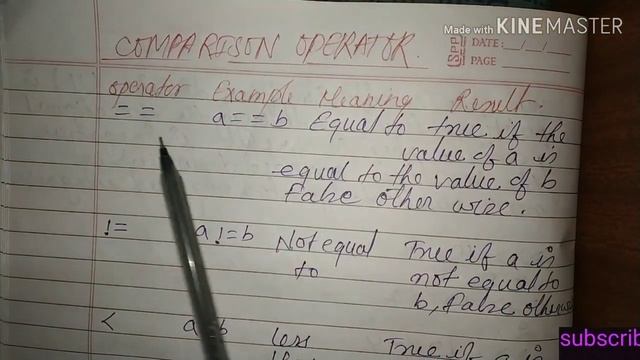 Made with KINEMASTER
SPP
DATE: __/__/__
PAGE ____
COMPARISON OPERATOR.
Operator Example Meaning Result.
== a==b Equal to true if the
value of a is
equal to the value of b
false other wise.
!= a!=b Not equal True if a is
to not equal to
b, false otherwise
< a<b less True if a is
subscrib